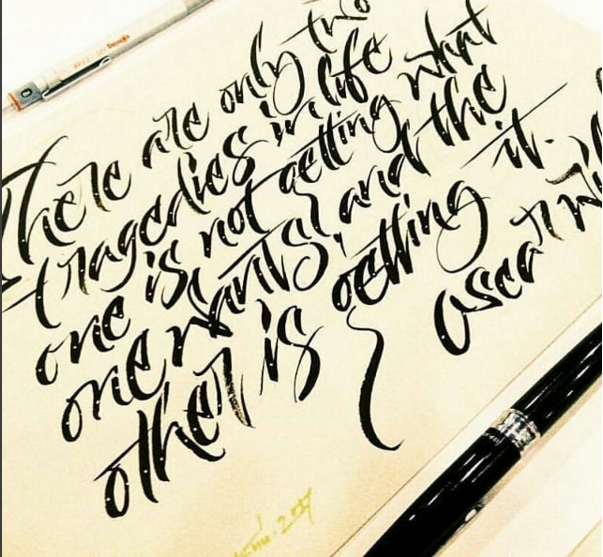 There are only two
tragedies in life
one is not getting what
one wants, and the
other is getting it.
oscar
2017